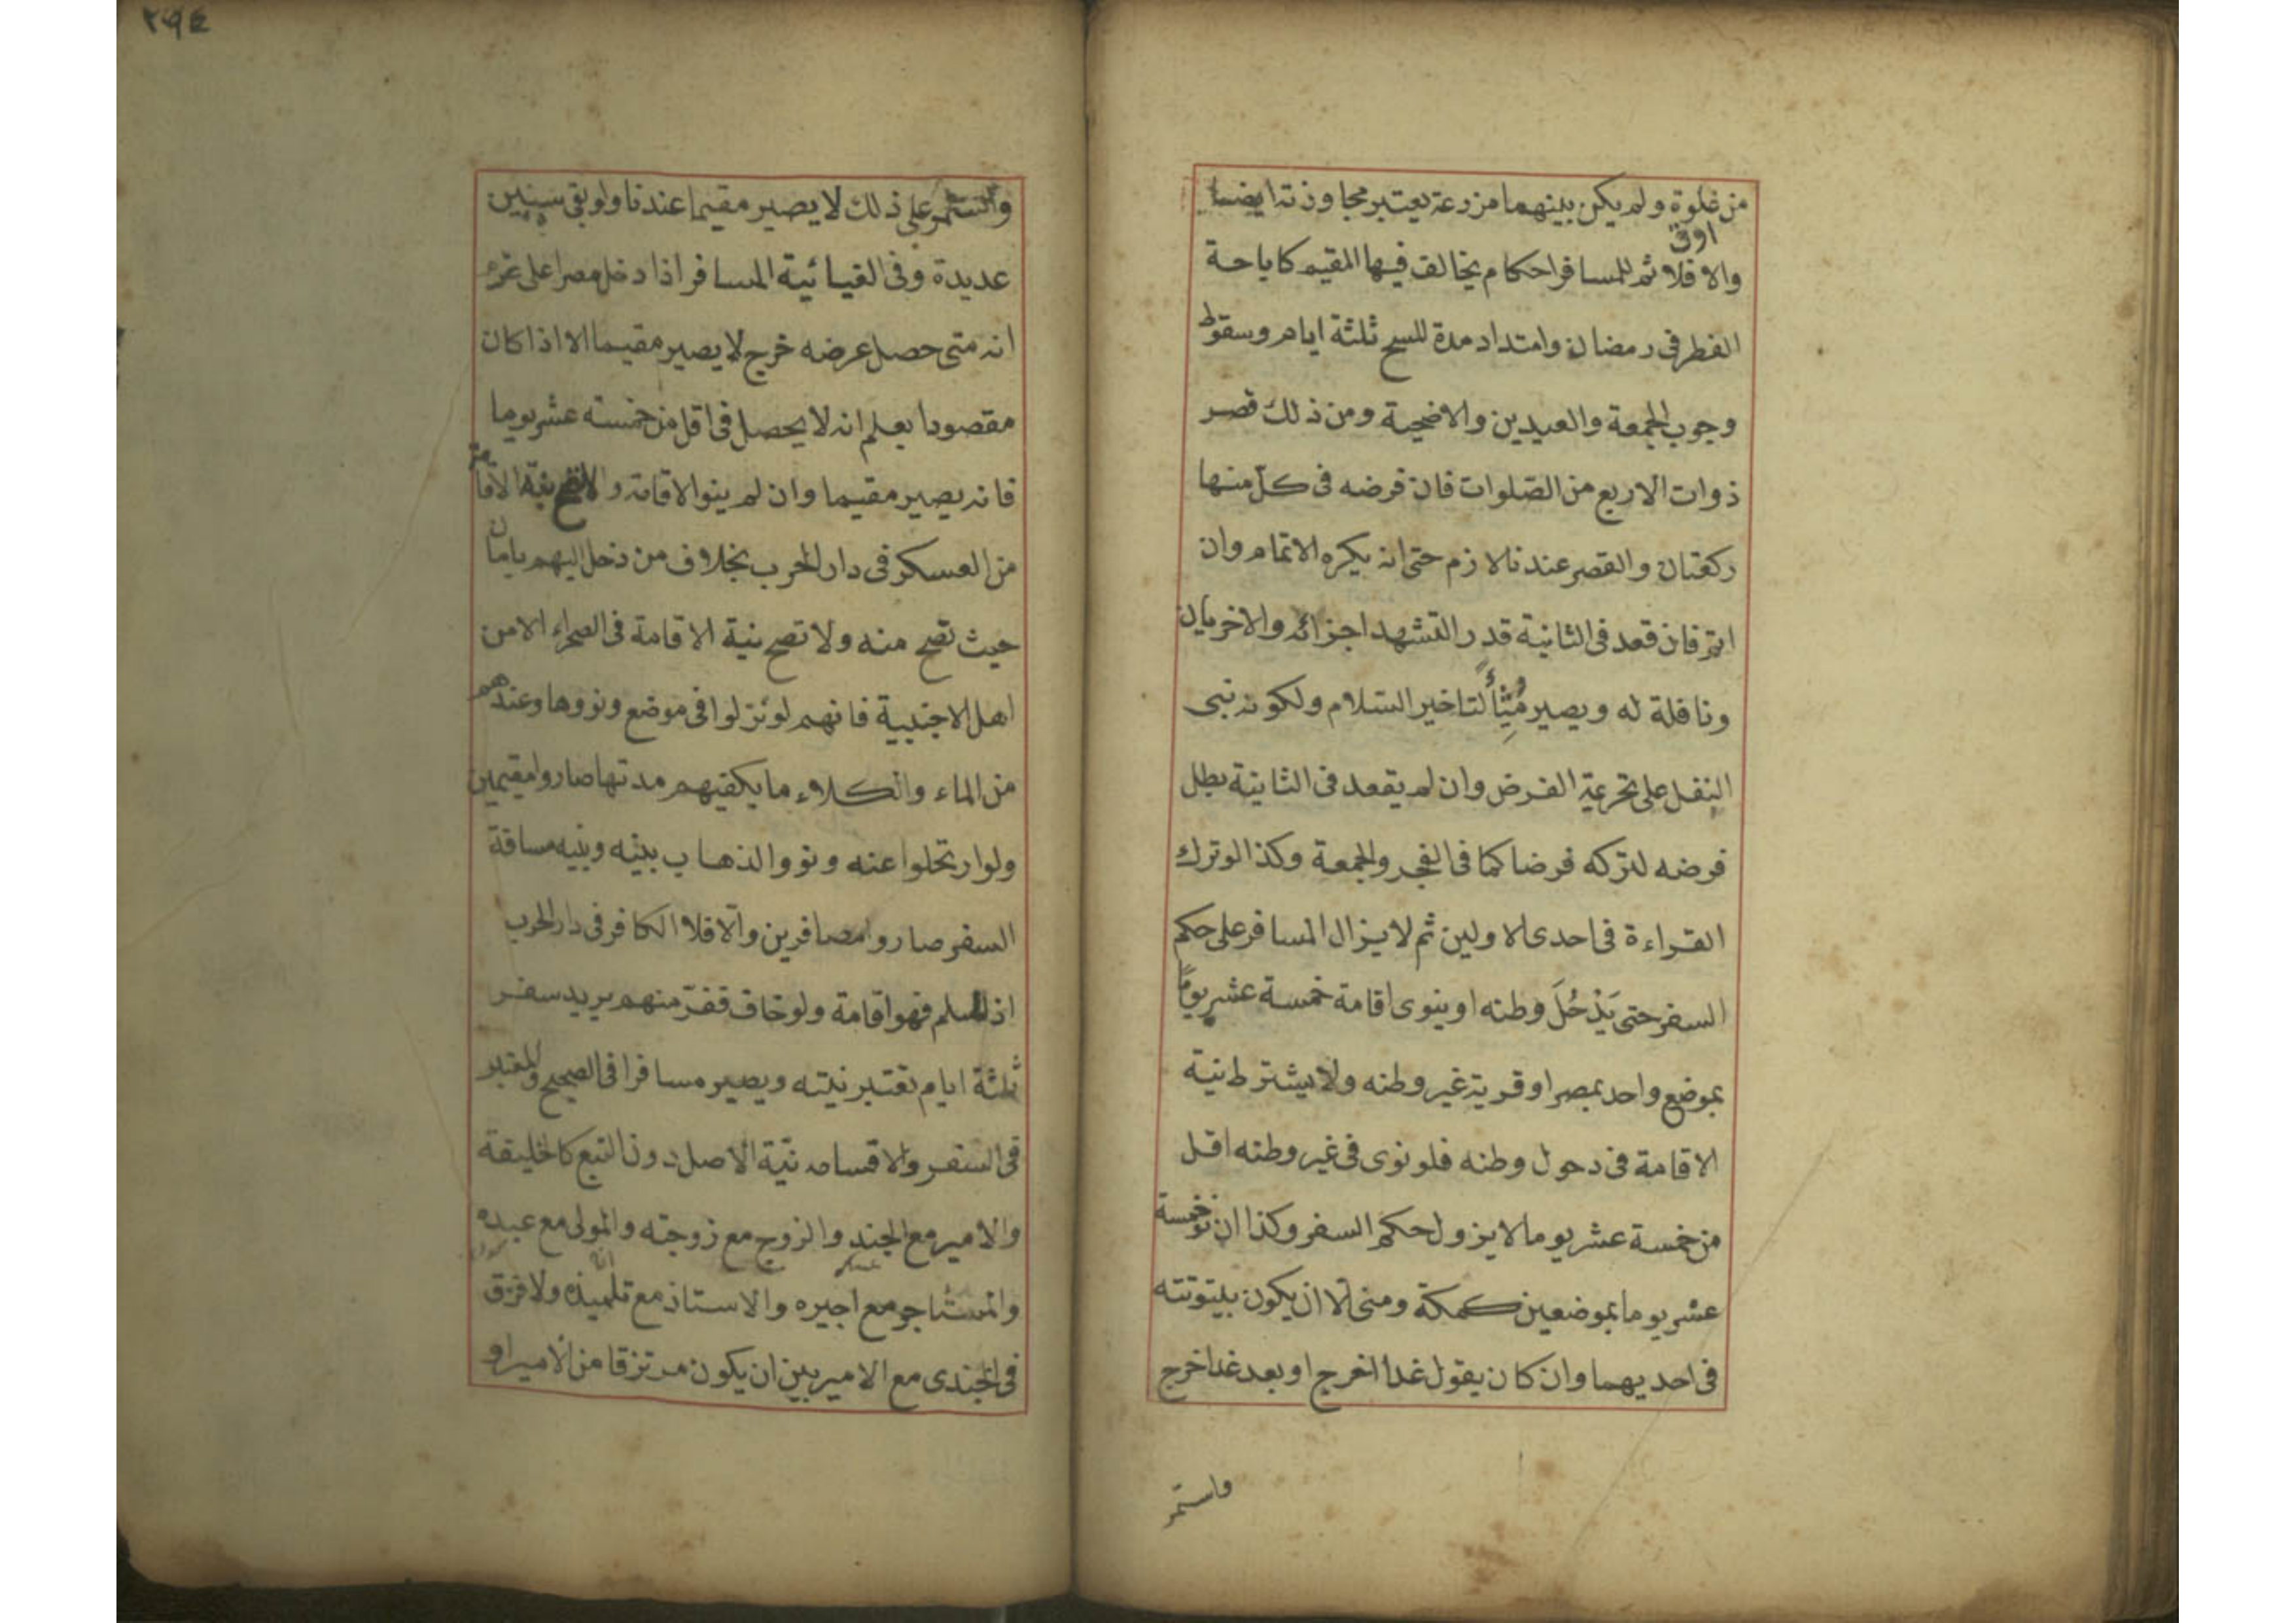 من غلوة ولم يكن بينهما مزرعة يعتبر مجاوزته ايضا
اوق
والا فلا ثم للمسافر احكام يخالف فيها المقيم كاباحة
الفطر فى رمضان وامتداد مدة المسح ثلثة ايام وسقوط
وجوب الجمعة والعيدين والاضحية ومن ذلك قصر
ذوات الاربع من الصّلوات فان فرضه فى كلّ منها
ركعتان والقصر عندنا لازم حتى انه يكره الاتمام وان
اتم فان قعد فى الثانية قدر التشهد اجزأته والاخريان
ونافلة له ويصير لتاخير السّلام ولكونه بنى
النفل على تحريمة الفرض وان لم يقعد فى الثانية بطل
فرضه لتركه فرضا كما فى الفجر والجمعة وكذا لو ترك
القراءة فى احدى الاولين ثم لا يزال المسافر على حكم
السفر حتى يَدْخُلَ وطنه او ينوى اقامة خمسة عشر يوماً
بموضع واحد بمصر او قرية غير وطنه ولا يشترط نية
الاقامة فى دحول وطنه فلو نوى فى غير وطنه اقل
من خمسة عشر يوما لا يزول حكم السفر وكذا ان نوى خمسة
عشر يوما بموضعين كمكة ومنى الّا ان يكون بيتوتته
فى احديهما وان كان يقول غدا اخرج او بعد غدا خرج
واستمر
٢٩٤
واستمر على ذلك لا يصير مقيما عندنا ولو بقى سنين
عديدة وفى الغياثية المسافر اذا دخل مصرا على عزم
انه متى حصل غرضه خرج لا يصير مقيما الا اذا كان
مقصودا يعلم انه لا يحصل فى اقل من خمسة عشر يوما
فانه يصير مقيما وان لم ينو الاقامة ولا تصح نية الاقامة
من العسكر فى دار الحرب بخلاف من دخل اليهم بامان
حيث تصح منه ولا تصح نية الاقامة فى الصحراء الا من
اهل الاخبية فانهم لو نزلوا فى موضع ونووها وعندهم
من الماء والكلاء ما يكفيهم مدتها صاروا مقيمين
ولو ارتحلوا عنه ونووا الذهاب بينه وبينه مسافة
السفر صاروا مصافرين والّا فلا الكافر فى دار الحرب
اذا اسلم فهو اقامة ولو خاف ففرّ منهم يريد سفر
ثلثة ايام تعتبر نيته ويصير مسافرا فى الصحيح والمعتبر
فى السفر والاقامة نيّة الاصل دون التبع كالخليفة
والامير مع الجند والزوج مع زوجته والمولى مع عبده
والمستاجر مع اجيره والاستاذ مع تلميذه ولا فرق
فى الجندى مع الامير بين ان يكون مرتزقا من الامير او